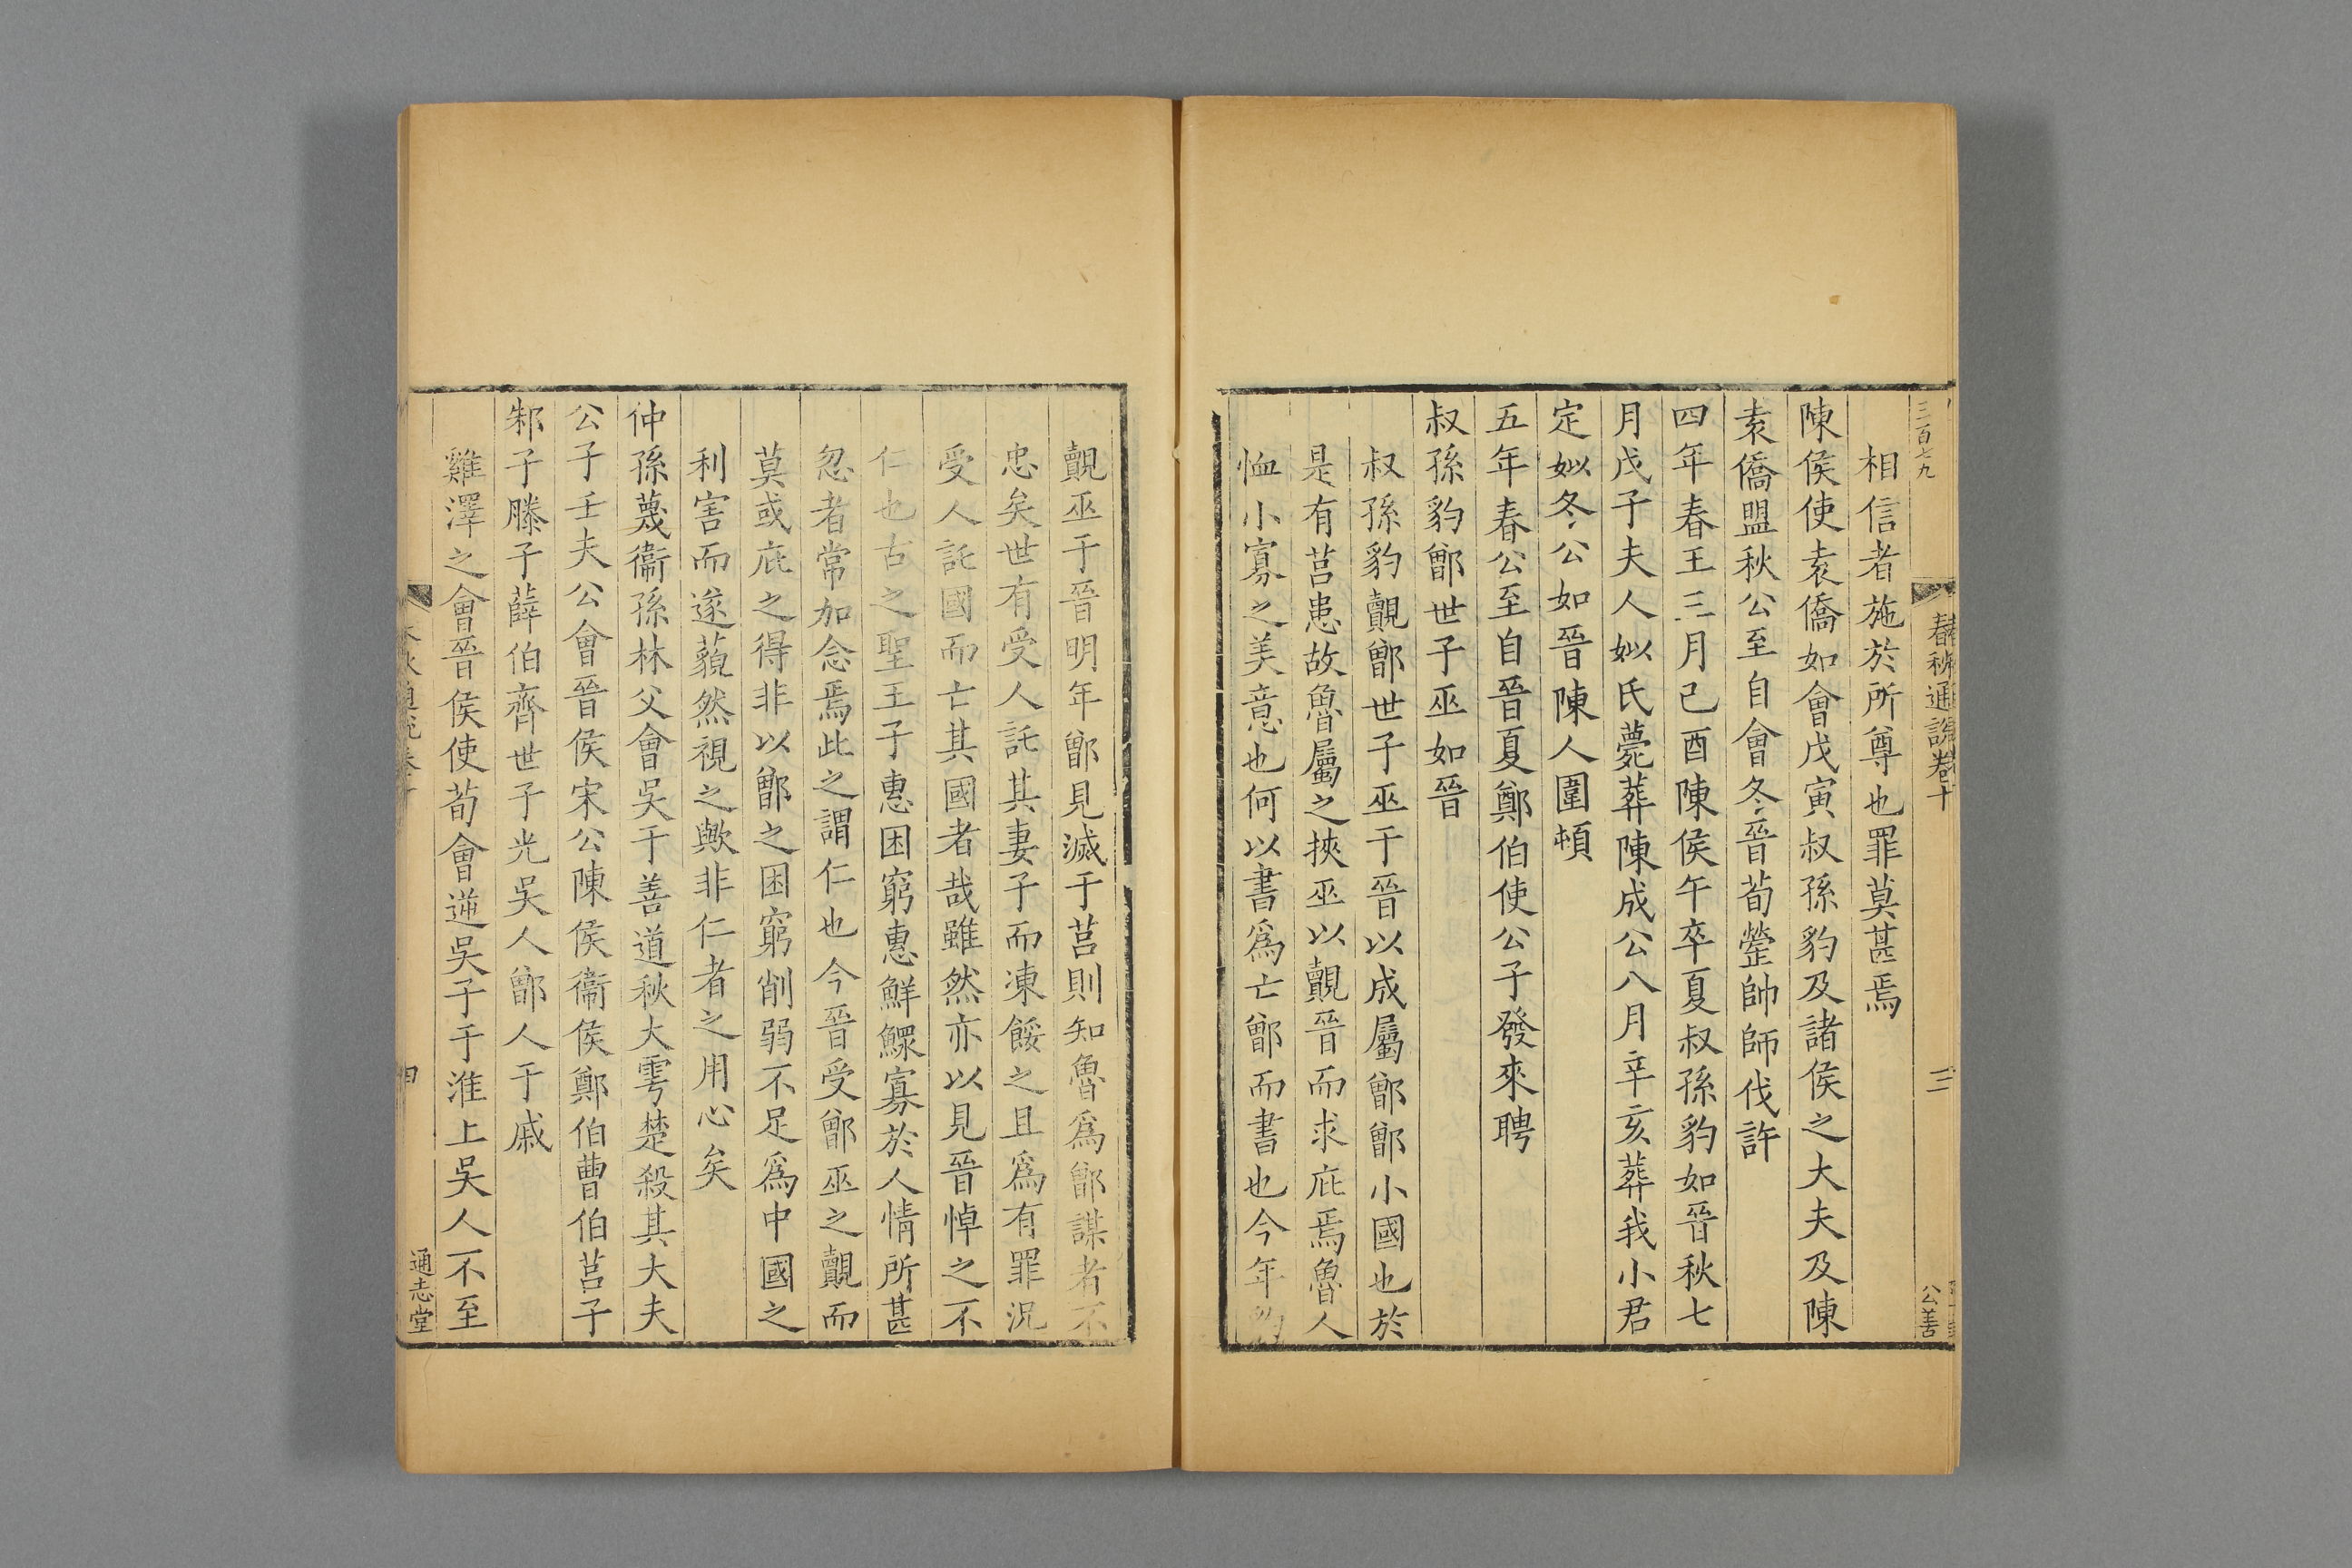 三百七九
春秋通說卷十
三
公善
相信者施於所尊也罪莫甚焉
陳侯使袁僑如會戊寅叔孫豹及諸侯之大夫及陳
袁僑盟秋公至自會冬晉荀罃帥師伐許
四年春王三月己酉陳侯午卒夏叔孫豹如晉秋七
月戊子夫人姒氏薨葬陳成公八月辛亥葬我小君
定姒冬公如晉陳人圍頓
五年春公至自晉夏鄭伯使公子發來聘
叔孫豹鄫世子巫如晉
叔孫豹覿鄫世子巫于晉以成屬鄫鄫小國也於
是有莒患故魯屬之挾巫以覿晉而求庇焉魯人
恤小寡之美意也何以書爲亡鄫而書也今年豹
覿巫于晉明年鄫見滅于莒則知魯爲鄫謀者不
忠矣世有受人託其妻子而凍餒之且爲有罪況
受人託國而亡其國者哉雖然亦以見晉悼之不
仁也古之聖王子惠困窮惠鮮鰥寡於人情所甚
忽者常加念焉此之謂仁也今晉受鄫巫之覿而
莫或庇之得非以鄫之困窮削弱不足爲中國之
利害而遂藐然視之歟非仁者之用心矣
仲孫蔑衞孫林父會吳于善道秋大雩楚殺其大夫
公子壬夫公會晉侯宋公陳侯衞侯鄭伯曹伯莒子
邾子滕子薛伯齊世子光吳人鄫人于戚
雞澤之會晉侯使荀會逆吳子于淮上吳人不至
四
通志堂